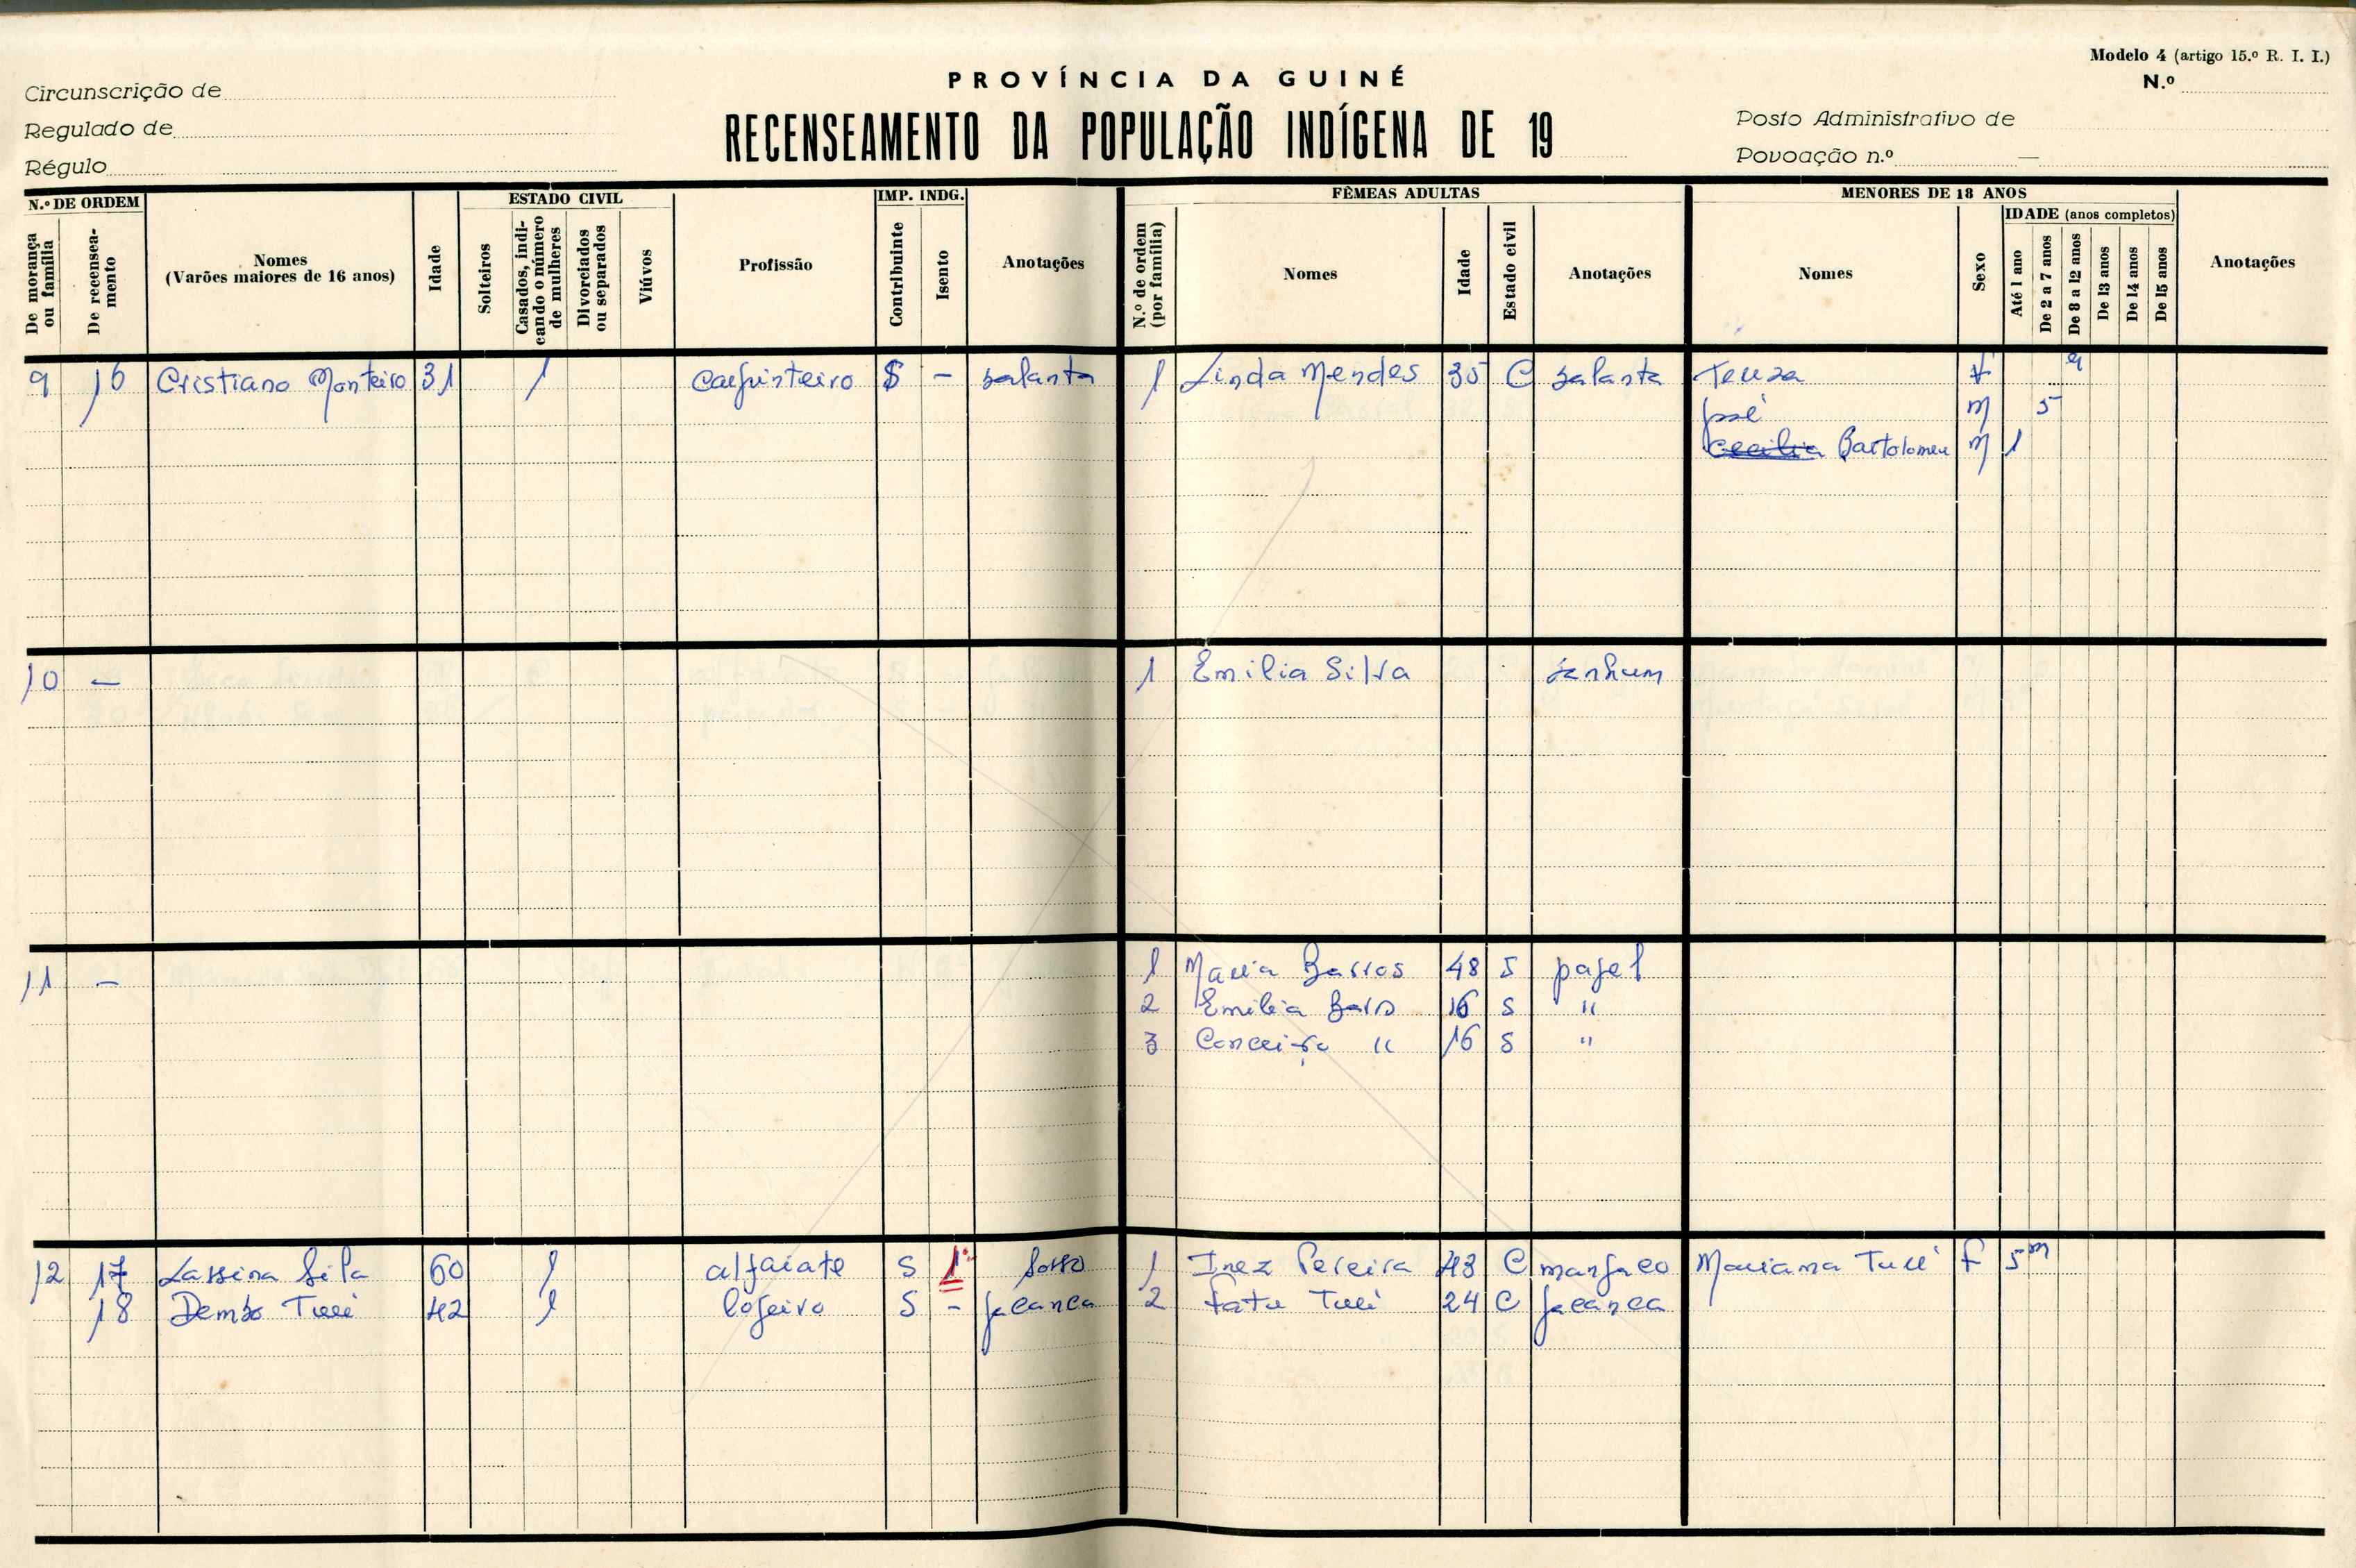 Modelo 4 (artigo 15.º R. I. I.)
PROVÍNCIA DA GUINÉ
N.º
Circunscrição de
RECENSEAMENTO DA POPULAÇÃO INDÍGENA DE 19
Posto Administrativo de
Regulado de
Povoação n.º —
Régulo
N.º DE ORDEM
De morança ou família
De recensea-mento
Nomes
(Varões maiores de 16 anos)
Idade
ESTADO CIVIL
Solteiros
Casados, indi-cando o número de mulheres
Divorciados ou separados
Viúvos
Profissão
IMP. INDG.
Contribuinte
Isento
Anotações
FÊMEAS ADULTAS
N.º de ordem (por família)
Nomes
Idade
Estado civil
Anotações
MENORES DE 18 ANOS
Nomes
Sexo
IDADE (anos completos)
Até 1 ano
De 2 a 7 anos
De 8 a 12 anos
De 13 anos
De 14 anos
De 15 anos
Anotações
9 16 Cristiano Monteiro 31 1 Carpinteiro $ - balanta 1 Linda Mendes 35 C balanta Teresa F 9
José M 5
Cecilia Bartolomeu M 1
10 — 1 Emilia Silva
11 — 1 Maria Barros 48 S papel
2 Emilia 16 S "
3 " 16 S "
12 17 Lassina Sila 60 1 alfaiate S 1º Sosso 1 Inez Pereira 43 C manjaco Mariama Turé F 5m
18 Dembo Turé 42 1 lojeiro S - jacanca 2 Fatu Turé 24 C jacanca